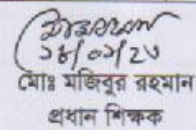 ২৮/০১/২৩
মোঃ মজিবুর রহমান
প্রধান শিক্ষক